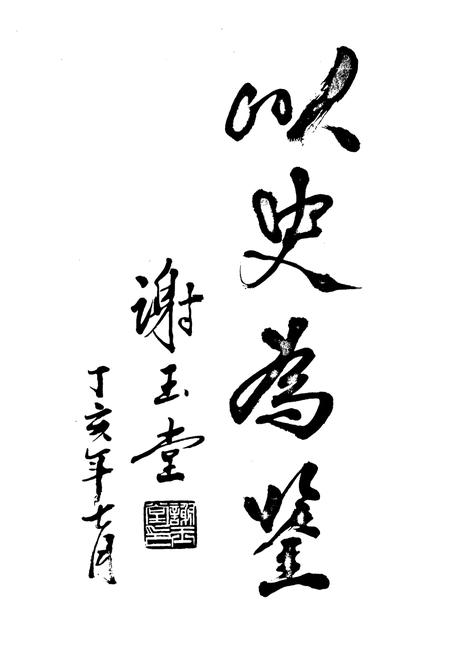 以史為鉴
谢玉堂
丁亥年七月
謝玉堂印